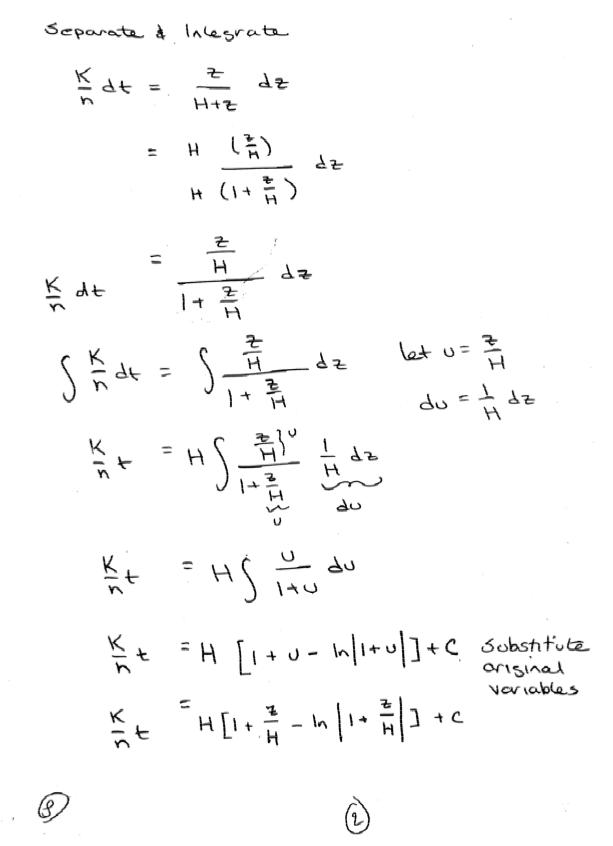 Separate & Integrate
K/n dt = z/(H+z) dz
= H (z/H) / H (1 + z/H) dz
K/n dt = (z/H) / (1 + z/H) dz
∫ K/n dt = ∫ (z/H) / (1 + z/H) dz let u = z/H
du = 1/H dz
K/n t = H ∫ (z/H)}u / (1 + z/H) 1/H dz
u du
K/n t = H ∫ u/(1+u) du
K/n t = H [1 + u - ln|1+u|] + C Substitute
original
variables
K/n t = H [1 + z/H - ln |1 + z/H|] + C
2